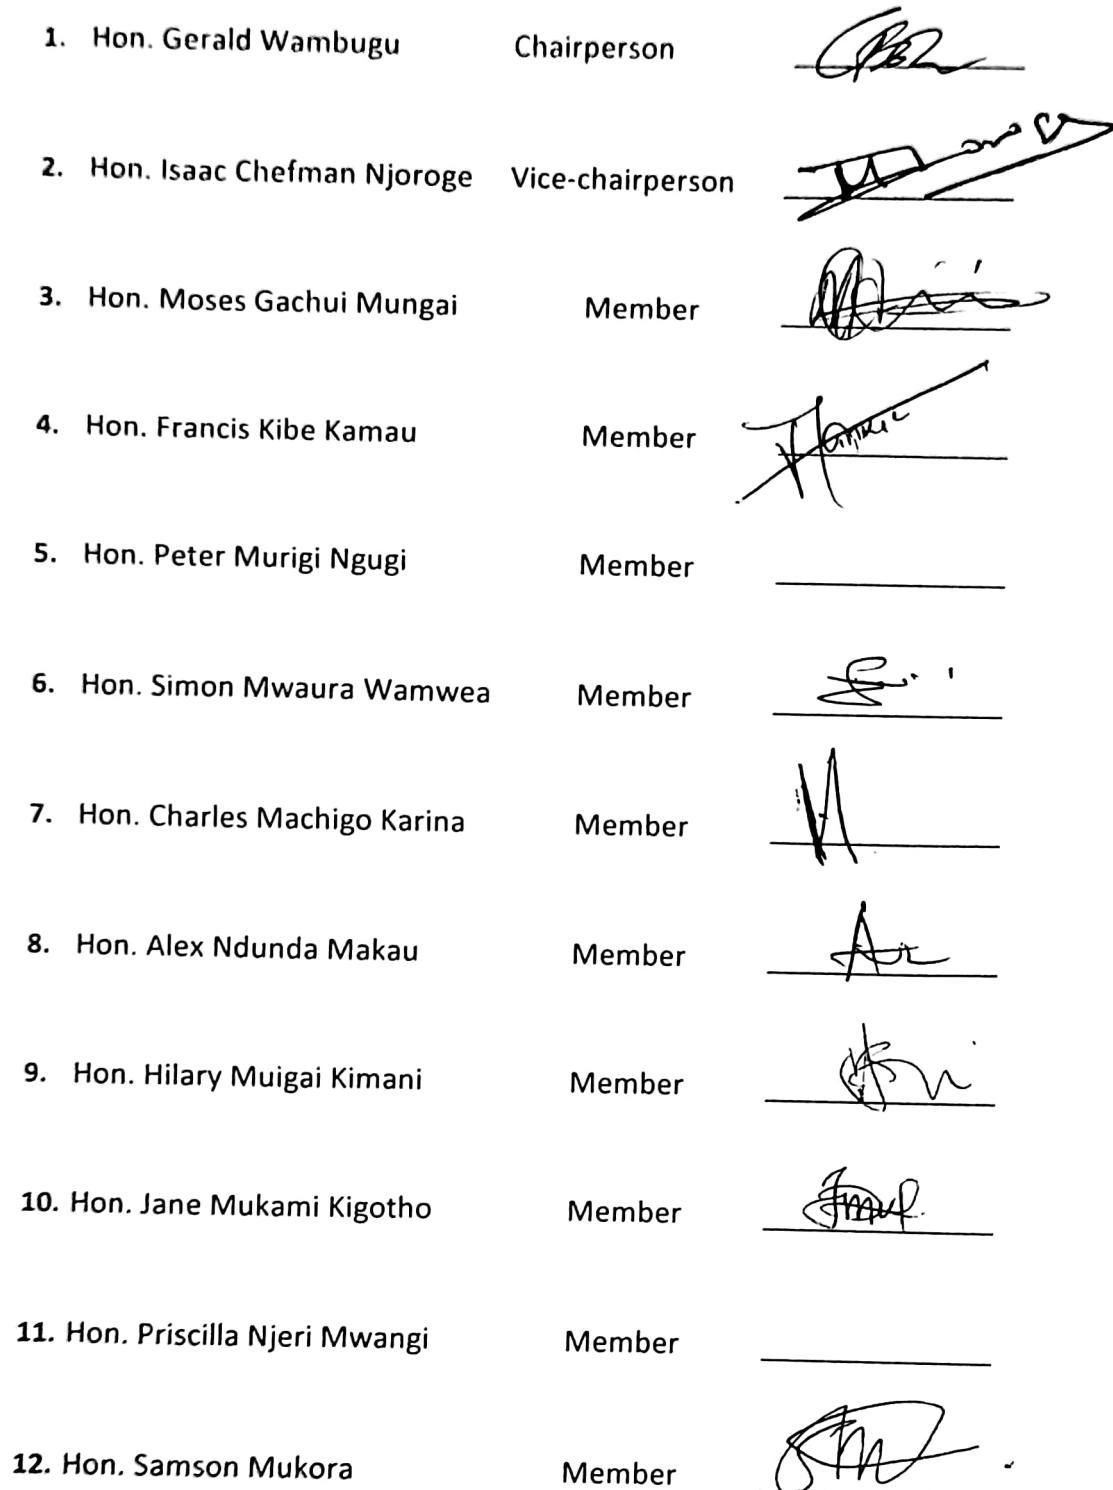 1. Hon. Gerald Wambugu Chairperson
2. Hon. Isaac Chefman Njoroge Vice-chairperson
3. Hon. Moses Gachui Mungai Member
4. Hon. Francis Kibe Kamau Member
5. Hon. Peter Murigi Ngugi Member
6. Hon. Simon Mwaura Wamwea Member
7. Hon. Charles Machigo Karina Member
8. Hon. Alex Ndunda Makau Member
9. Hon. Hilary Muigai Kimani Member
10. Hon. Jane Mukami Kigotho Member
11. Hon. Priscilla Njeri Mwangi Member
12. Hon. Samson Mukora Member